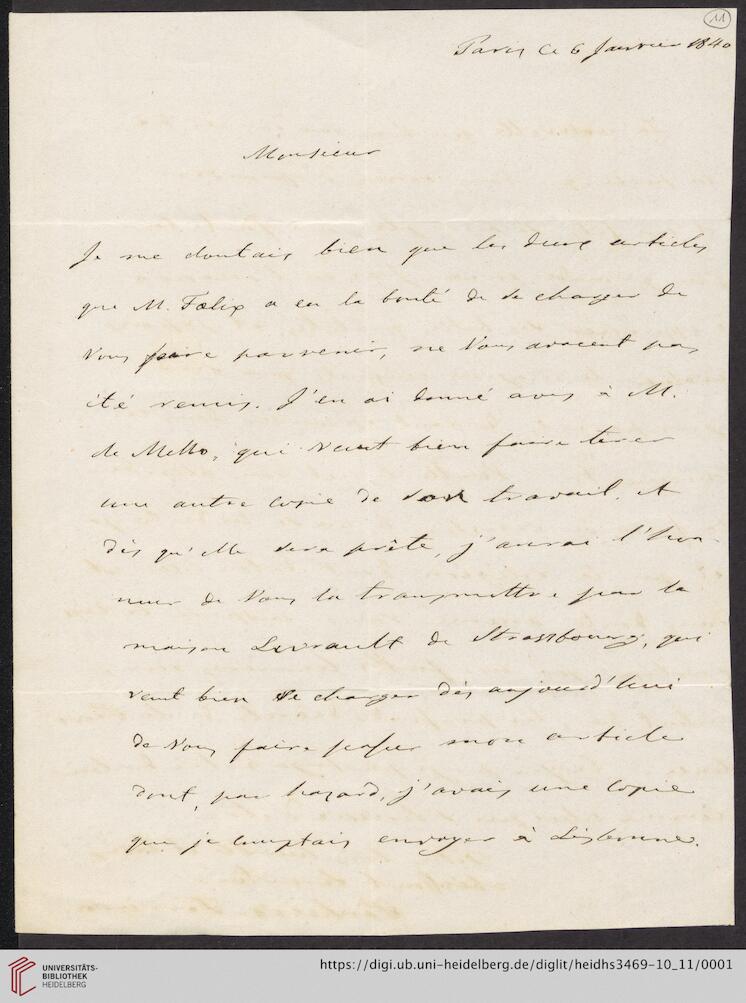 11
Paris ce 6 Janvier 1840
Monsieur
Je me doutais bien que les deux articles
que M. Fœlix a eu la bonté de se charger de
Vous faire parvenir, ne Vous avaient pas
été remis. J'en ai donné avis à M.
de Mello, qui veut bien faire tirer
une autre copie de son travail, et
dès qu'elle sera prête, j'aurai l'hon-
neur de Vous la transmettre par la
maison Levrault de Strassbourg, qui
veut bien se charger dès aujourd'hui
de Vous faire passer mon article
dont, par hazard, j'avais une copie
que je comptais envoyer à Lisbonne.
UNIVERSITÄTS-
BIBLIOTHEK
HEIDELBERG
https://digi.ub.uni-heidelberg.de/diglit/heidhs3469-10_11/0001